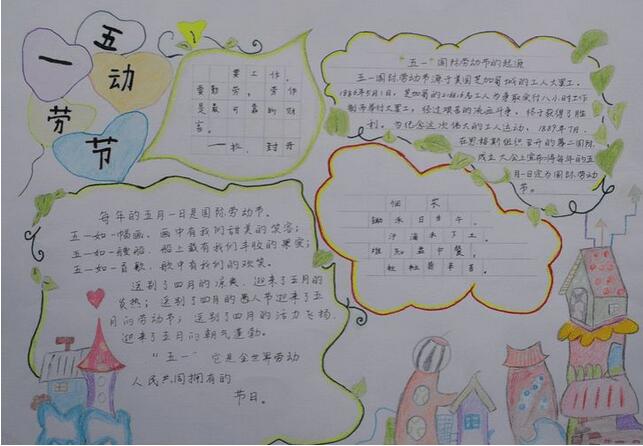 五
一 动
劳
节
要工作,
要勤劳:劳作
是最可靠的财
富。
——拉.封丹
"五一"国际劳动节的起源
五一国际劳动节源于美国芝加哥城的工人大罢工。
1886年5月1日,芝加哥的 名工人为争取实行八小时工作
制而举行大罢工,经过艰苦的流血斗争,终于获得了胜
利。为纪念这次伟大的工人运动,1889年7月,
在恩格斯组织召开的第二国际
成立大会上宣布将每年的五
月一日定为国际劳动
节。
悯 农
锄禾日当午,
汗滴禾下土。
谁知盘中餐,
粒粒皆辛苦。
每年的五月一日是国际劳动节。
五一如一幅画,画中有我们甜美的笑容;
五一如一艘船,船上载有我们丰收的果实;
五一如一首歌,歌中有我们的欢笑。
送别了四月的凉爽,迎来了五月的
炎热;送别了四月的愚人节迎来了五
月的劳动节;送别了四月的活力飞扬,
迎来了五月的朝气蓬勃。
"五一" 它是全世界劳动
人民共同拥有的
节日。